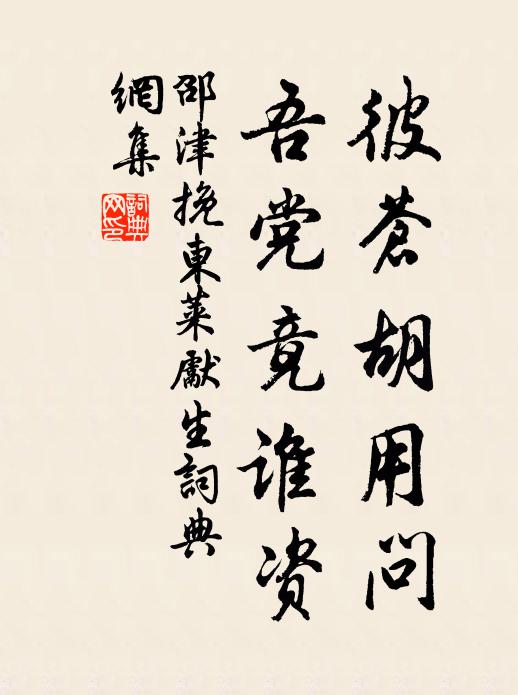 彼蒼胡用问
吾党竟谁资
邵津挽東莱獻生詞典
網集
詞典
网印